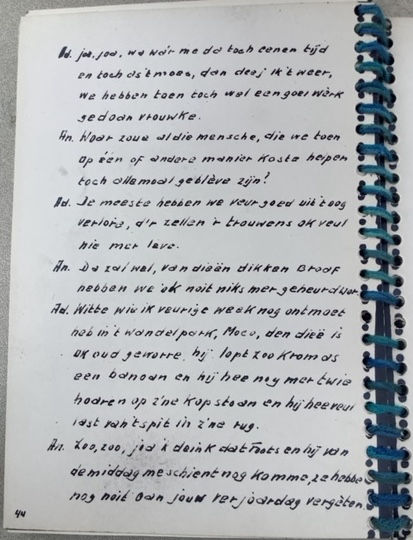 Ad. joa, joa, wa wa're me da toch eenen tijd
en toch as't moes, dan deej ik't weer,
we hebben toen toch wel een goei wèrk
gedoan vrouwke.
An. Waar zoue al die mensche, die we toen
op één of andere manier koste helpen
toch allemoal geblève zijn?
Ad. De meeste hebben we veur goed uit 't oog
verlore, d'r zellen 'r trouwens ok veul
nie mer leve.
An. Da zal wel, van dieën dikken Braaf
hebben we ok noit niks mer geheurd
Ad. Witte wie ik veurige week nog ontmoet
heb in't wandelpark, Moco, den dieë is
ok oud geworre, hij lopt zoo krom as
een banaan en hij hee nog mer twie
hoaren op z'ne kop stoan en hij hee veul
last van't spit in z'ne rug.
An. Zoo, zoo, joa ik doink dat en hij van
de middag meschient nog komme, ze hebbe
nog noit oan jouw verjoardag vergèten
44